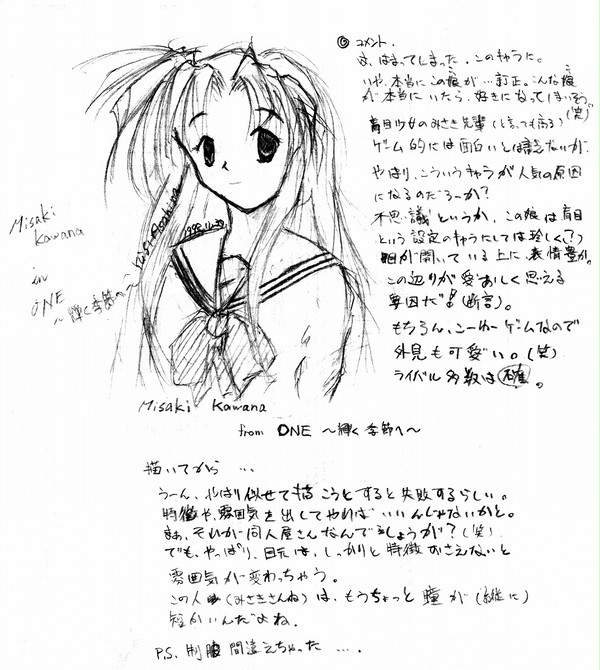 ◎ コメント.
は、はまってしまった。このキャラに。
いや、本当にこの娘が…訂正。こんな娘
が本当にいたら、好きになってしまいそう。(笑)
盲目少女のみさき先輩(と言っても高3)
ゲーム的には面白いとは言えないが、
やはり、こういうキャラが人気の原因
になるのだろーか?
不思議というか、この娘は盲目
という設定のキャラにしては珍しく(?)
瞳が開いている上に、表情豊か。
この辺りが愛おしく思える
要因だ!(断言)。
もちろん、こーゆーゲームなので
外見も可愛い。(笑)
ライバル多数は確。
Misaki
Kawana
in
ONE
～輝く季節へ～
1998.11.30
Misaki Kawana
from ONE ～輝く季節へ～
描いてから …
うーん、やはり似せて描こうとすると失敗するらしい。
特徴や、雰囲気を出してやれば いいんじゃないかと。
まぁ、それが同人屋さんなんでましょうが?(笑)
でも、やっぱり、目元は、しっかりと特徴おさえないと
雰囲気が変わっちゃう。
この人(みさきさんね)は、もうちょっと瞳が(縦に)
短かいんだよね.
P.S. 制服間違えちゃった ….